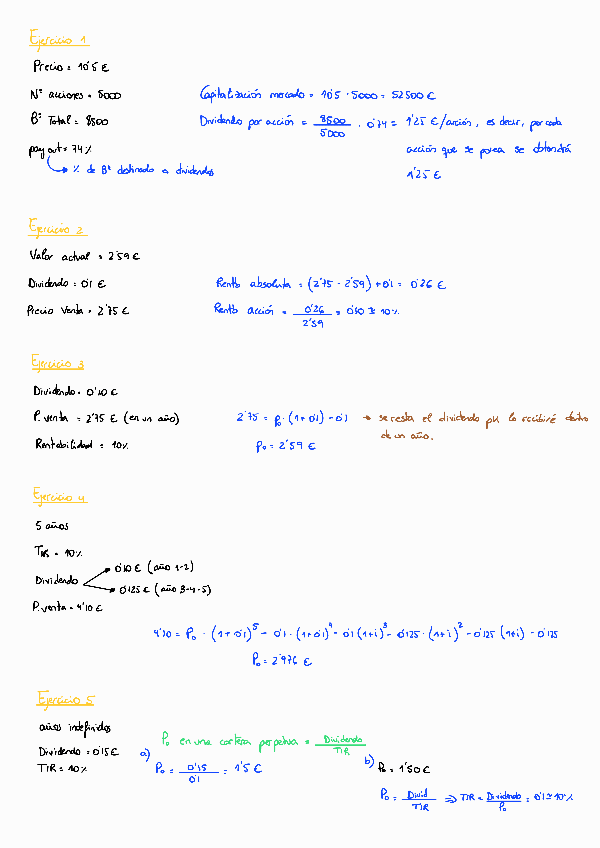 Ejercicio 1
Precio = 10'5 €
Nº acciones = 5000
Capitalización mercado = 10'5 · 5000 = 52500 €
Bº Total = 8500
Dividendo por acción = 8500/5000 · 0'74 = 1'25 €/acción, es decir, por cada
pay out = 74 %
acción que se posea se obtendrá
% de Bº destinado a dividendos
1'25 €
Ejercicio 2
Valor actual = 2'59 €
Dividendo = 0'1 €
Rento absoluta = (2'75 - 2'59) + 0'1 = 0'26 €
Precio Venta = 2'75 €
Rento acción = 0'26/2'59 = 0'10 ≅ 10%
Ejercicio 3
Dividendo = 0'10 €
P. venta = 2'75 € (en un año)
2'75 = P₀ · (1+0'1) - 0'1 → se resta el dividendo pq lo recibiré dentro
de un año.
Rentabilidad = 10%
P₀ = 2'59 €
Ejercicio 4
5 años
TIR = 10%
0'10 € (año 1-2)
Dividendo
0'125 € (año 3-4-5)
P. venta = 4'10 €
4'10 = P₀ · (1+0'1)⁵ - 0'1 · (1+0'1)⁴ - 0'1 (1+i)³ - 0'125 · (1+i)² - 0'125 (1+i) - 0'125
P₀ = 2'976 €
Ejercicio 5
años indefinidos
P₀ en una cartera perpetua = Dividendo/TIR
Dividendo = 0'15 €
a)
TIR = 10%
P₀ = 0'15/0'1 = 1'5 €
b) P₀ = 1'50 €
P₀ = Divid/TIR ⇒ TIR = Dividendo/P₀ = 0'1 ≅ 10%